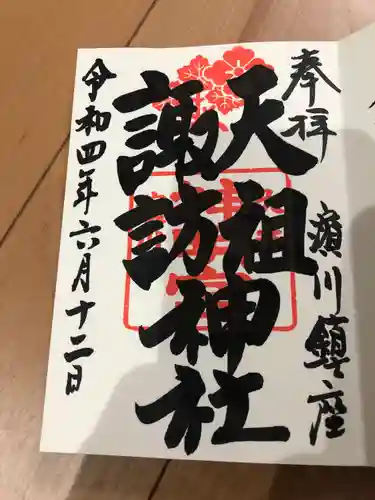 奉拝
瀬川鎮座
天祖
諏訪神社
令和四年六月十二日